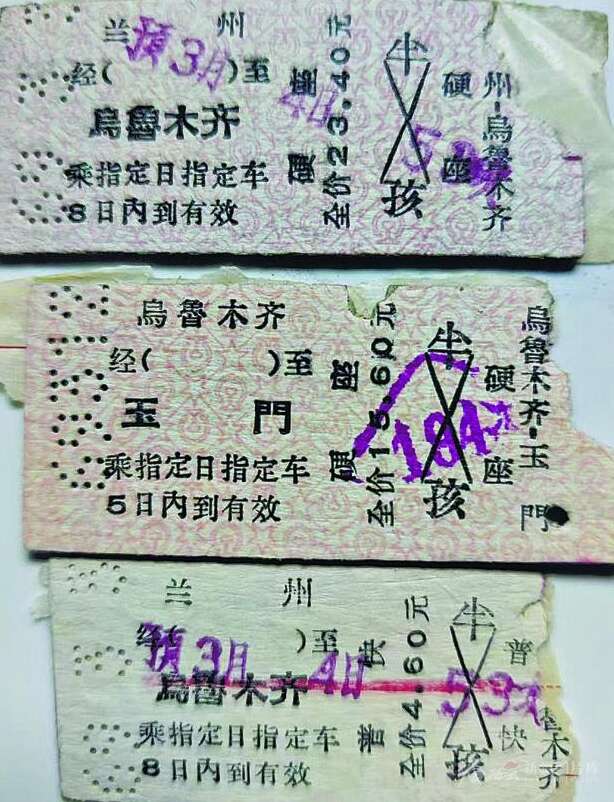 兰 州
預 3月 4日
经( )至
烏魯木齐
乘指定日指定车
8日内到有效
硬 座
全价23.40元
半
孩
硬
座
州-烏魯木齐
烏魯木齐
经( )至
玉 門
乘指定日指定车
5日内到有效
硬 座
全价15.60元
半
孩
184次
硬
座
烏魯木齐-玉 門
兰 州
預 3月 4日 53次
经( )至
烏魯木齐
乘指定日指定车
8日内到有效
普 快
全价4.60元
半
孩
普
快
木齐